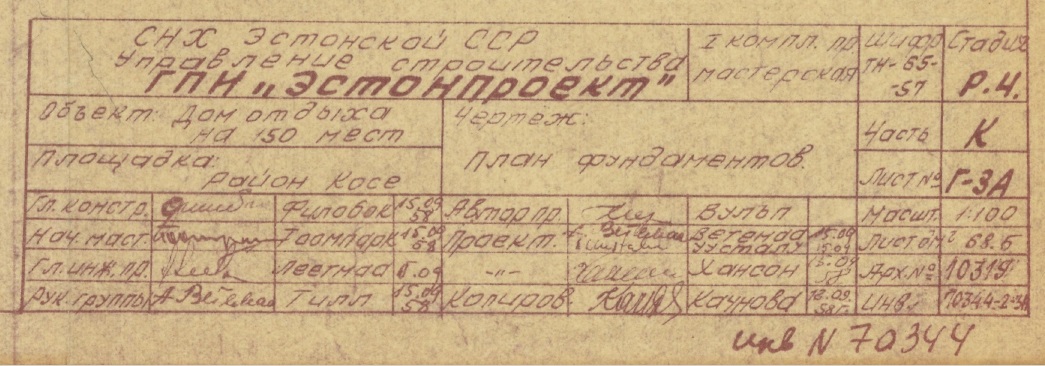 СНХ Эстонской ССР
Управление строительства
ГПИ „Эстонпроект"
I компл. пр
мастерская
Шифр
ТН-65-
-57
Стадия
Р.Ч.
Объект: Дом отдыха
на 150 мест
Чертеж:
План фундаментов.
Часть
К
Площадка:
Район Косе
Лист №
Г-3А
Гл. констр. Филобок 15.09 58 Автор пр. Вульп Масшт. 1:100
Нач. маст. Тоомпарк 15.09 58 Проект. Ветемаа 15.09 Уусталу 15.09 Лист в м² 68.б
Гл. инж. пр. Леетмаа 15.09 -"- Хансон 15.09 58 Арх № 10319
Рук. группы А Ветемаа Тилл 15.09 58 Копиров. Качнова 12.09 58г. Инв.
инв N 70344